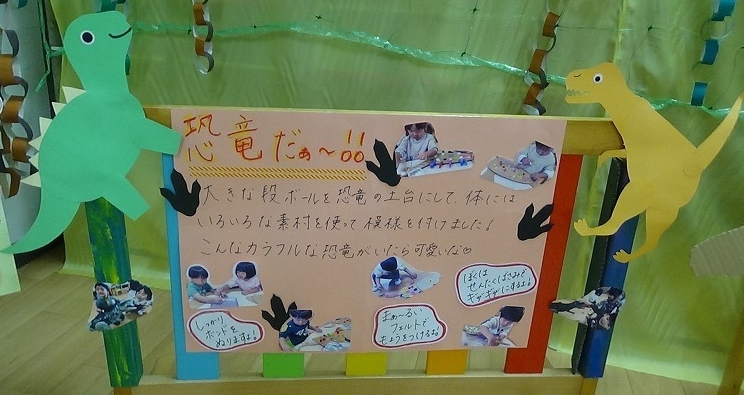 恐竜だぁ〜!!
大きな段ボールを恐竜の土台にして、体には
いろいろな素材を使って模様を付けました!
こんなカラフルな恐竜がいたら可愛いな♡
ぼくは
せんたくばさみで
ギザギザにするよ!
しっかり
ボンドを
ぬりますよ!
まぁ〜るい
フェルトで
もようをつけるよ!